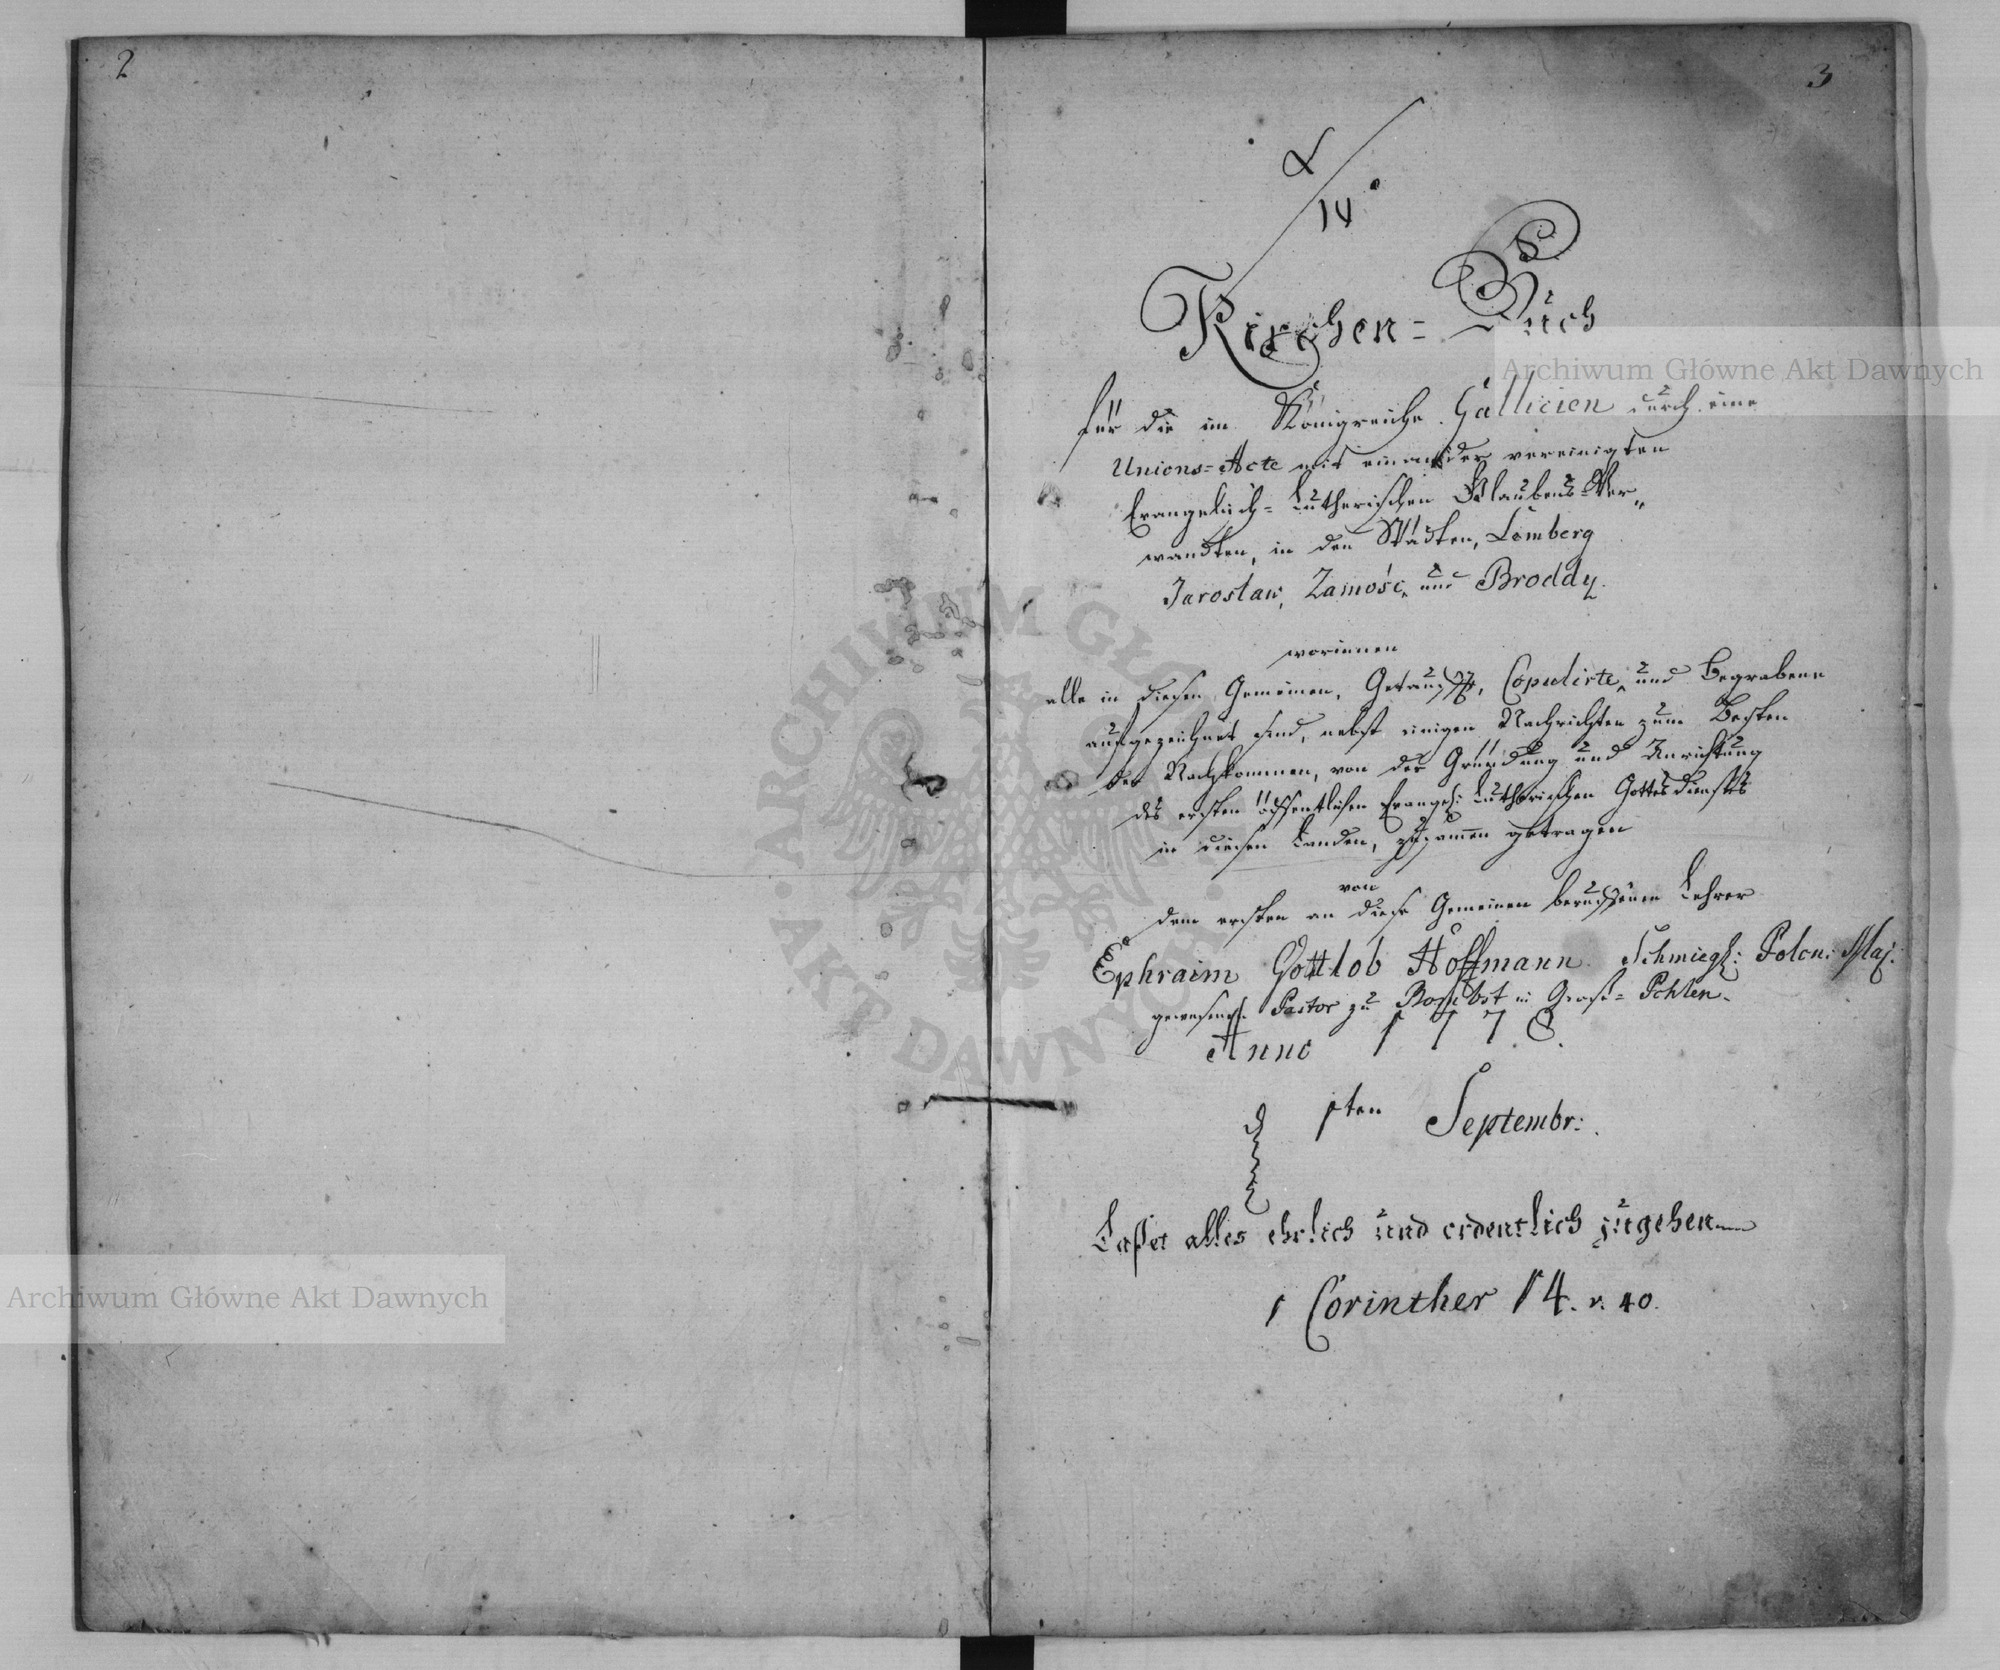 2
3
14
Kirchen=Buch
für die im Königreiche Gallicien durch eine
Unions=Acte mit einander vereinigten
Evangelisch=Lutherischen Glaubens=Ver„
wandten, in den Städten, Lemberg
Jaroslaw, Zamość, und Broddy.
worinnen
alle in diesen Gemeinen, Getaufte, Copulirte, und Begrabene
aufgezeichnet sind, nebst einigen Nachrichten zum Besten
der Nachkommen, von der Gründung und Anrichtung
des ersten öffentlichen Evangel: Lutherischen Gottesdienstes
in diesen Landen, zusamen getragen
von
dem ersten an diese Gemeinen beruffenen Lehrer
Ephraim Gottlob Hoffmann Schmiegl: Polon: Maj:
gewesenen Pastor zu in Groß=Pohlen.
Anno 1778.
1ten Septembr:.
Laßet alles ehrlich und ordentlich zugehen
1 Corinther 14. v. 40.
Archiwum Główne Akt Dawnych
Archiwum Główne Akt Dawnych
ARCHIWUM GŁÓWNE · AKT DAWNYCH ·